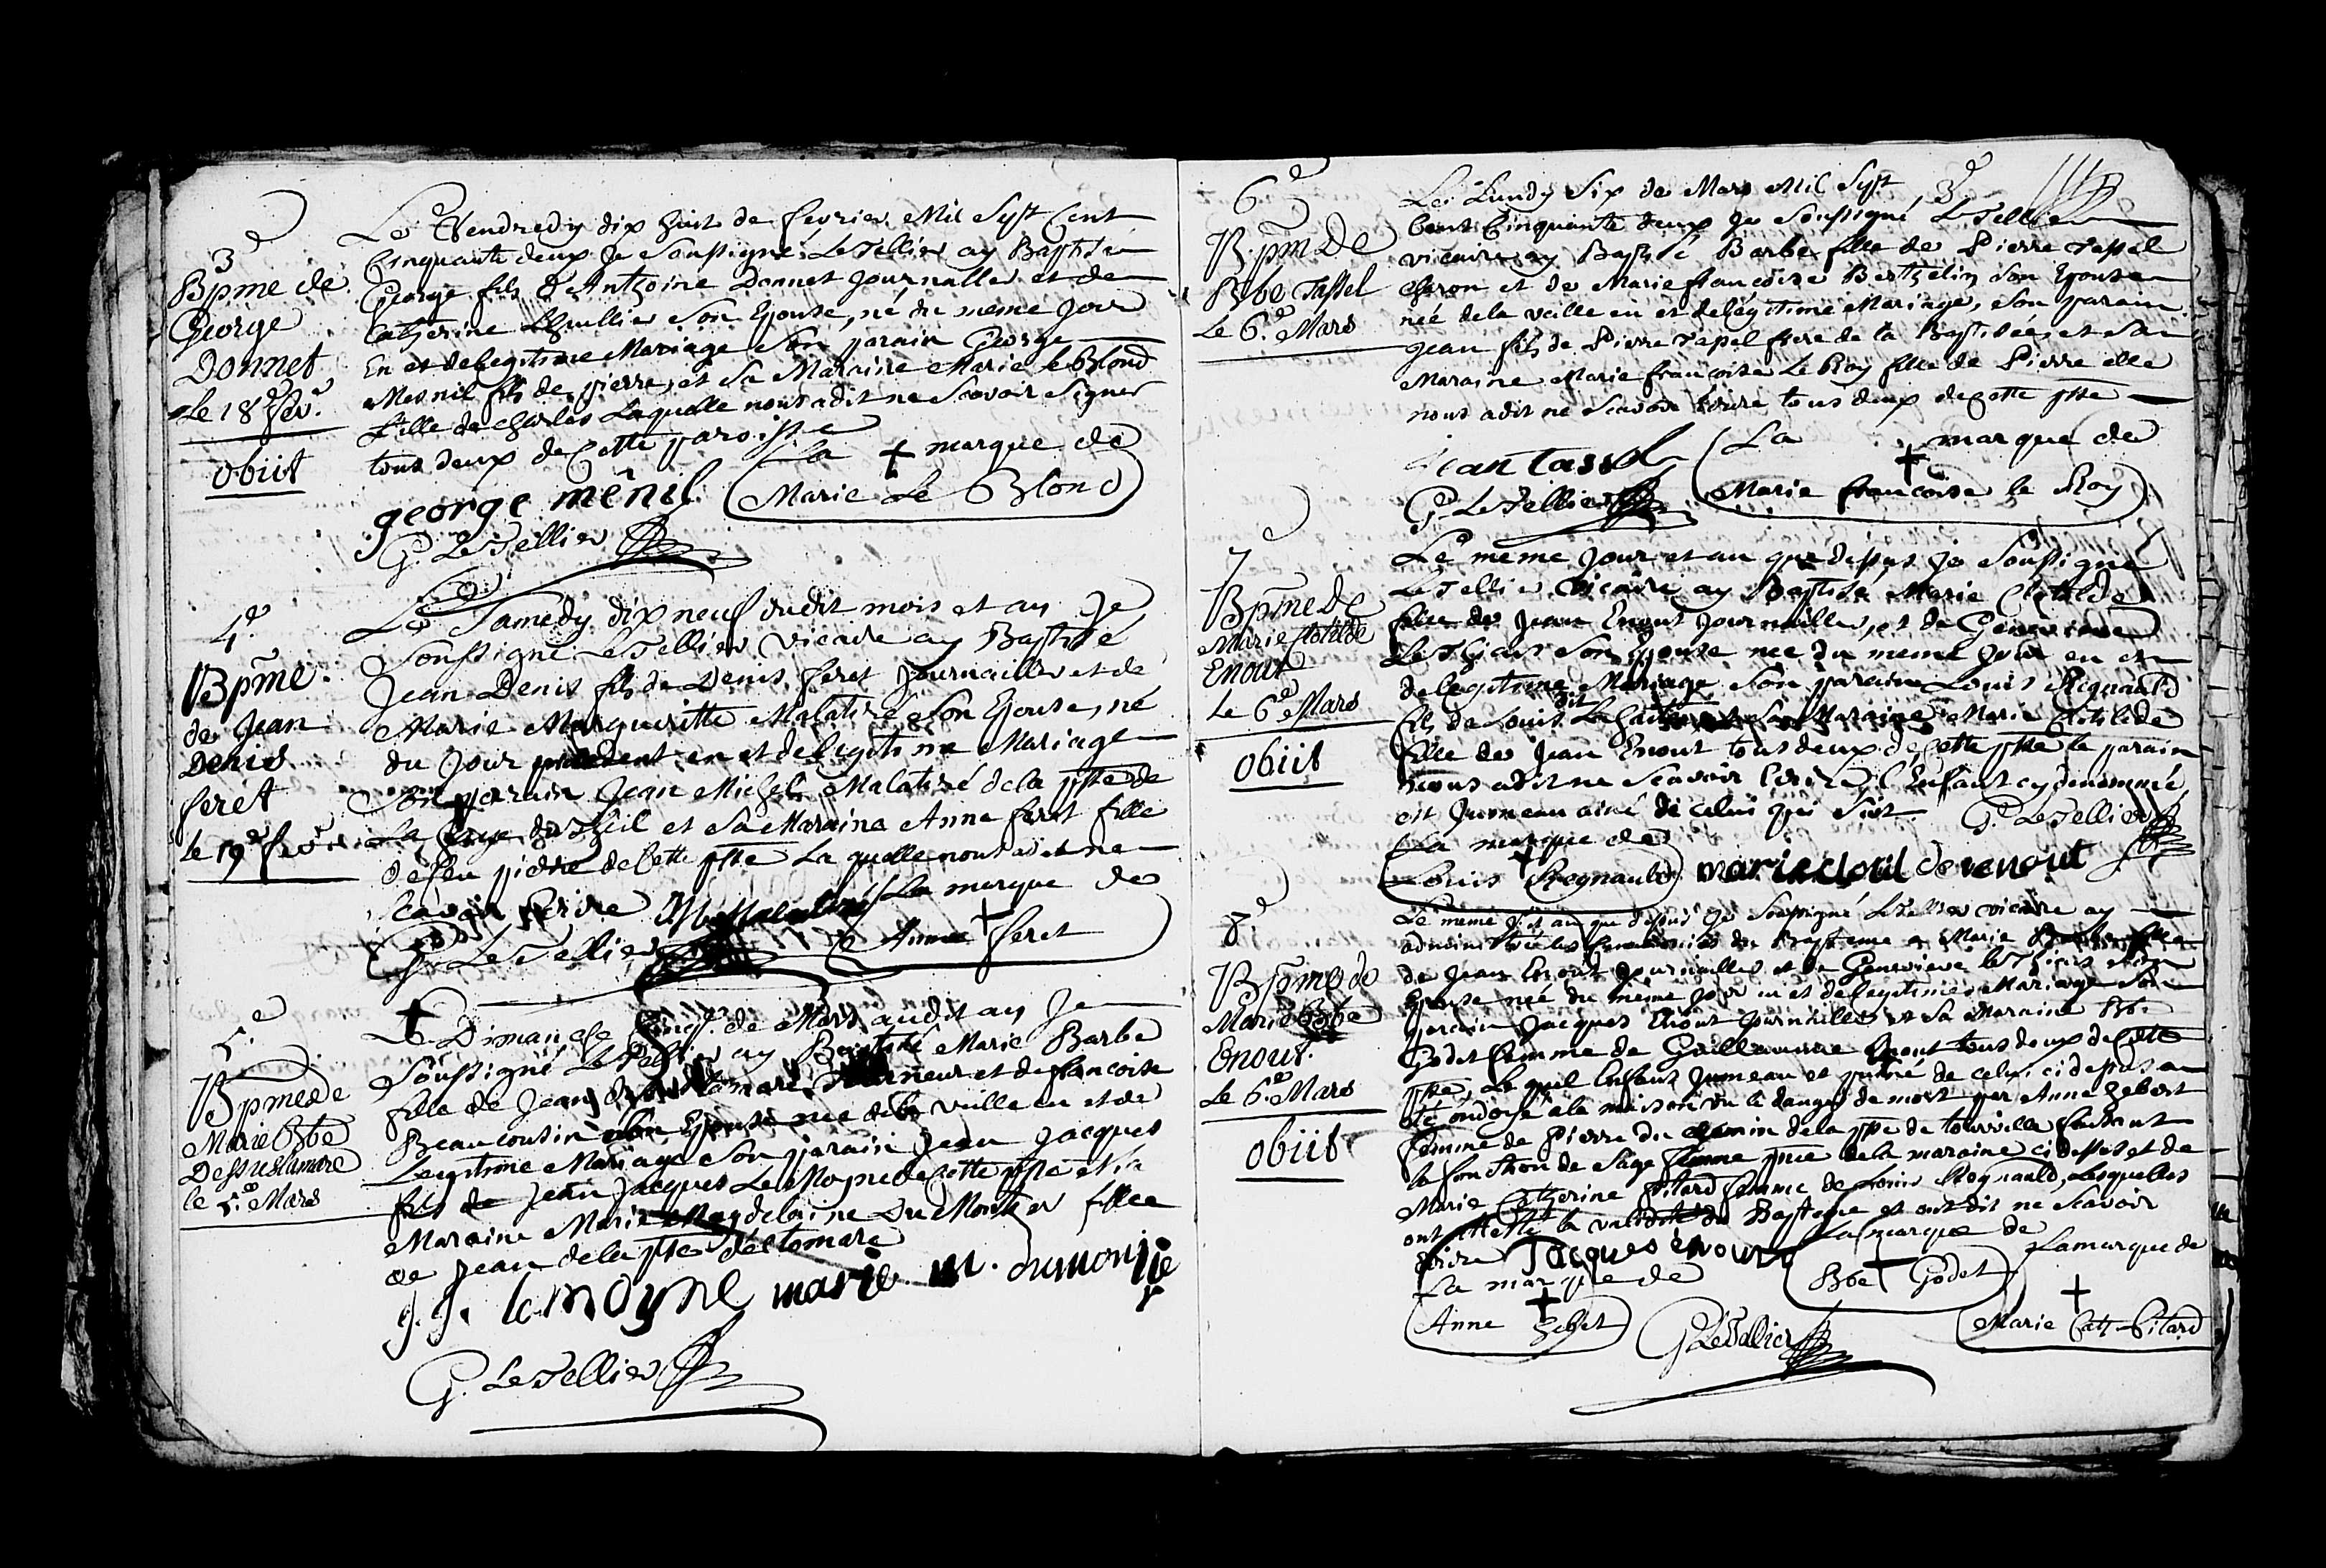 3e
Bpme de
George
Donnet
Le 18e fevr.
obiit
Le Vendredy dix huit de fevrier Mil Sept Cent
Cinquante deux Je Soussigné LeTellier ay Baptisé
George fils d'Anthoine Donnet Journallier et de
Catherine Lhuillier Son Epouse, né du meme Jour
En et delegitime Mariage Son parain George
Mesnil fils de pierre, et Sa Maraine Marie le Blond
fille de Charles Laquelle nous a dit ne Scavoir Signer
tous deux de Cette paroisse
La + marque de
Marie Le Blond
george mênil
G. LeTellier
4e
Bpme.
de Jean
Denis
feret
le 19e fevr.
Le Samedy dix neuf dudit mois et an Je
Soussigné LeTellier vicaire ay Baptisé
Jean Denis fils de Denis feret Journallier et de
Marie Margueritte Malatiré Son Epouse, né
du Jour precedent en et delegitime Mariage
Son parain Jean Michel Malatiré dela psse de
La du Theil et Sa Maraine Anne feret fille
de feu pierre de Cette psse La quelle nous a dit ne
Scavoir Ecrire
La marque de
Anne + feret
G. LeTellier
5e
Bpme de
Marie Bbe
Desuslamare
le 5e Mars
Le Dimanche Cinq de Mars audit an Je
Soussigné LeTellier ay Baptisé Marie Barbe
fille de Jean et de francoise
Beaucousin Son Epouse née dela veille en et de
Legitime Mariage Son parain Jean Jacques
fils de Jean Jacques Le Moyne de Cette psse et Sa
Maraine Marie Magdelaine Du Monstier fille
de Jean dela psse
j. j. lemoyne marie m. dumontie
r
G. LeTellier
6e
Bpm De
Bbe Tassel
Le 6e Mars
3e
Le Lundy Six de Mars Mil Sept
Cent Cinquante deux Je Soussigné LeTellier
vicaire ay Baptisé Barbe fille de Pierre Tassel
Charon et de Marie francoise Berthelin Son Epouse
née dela veille en et delegitime Mariage, Son parain
Jean fils de Pierre Tassel frere de la Baptisée, et Sa
Maraine Marie francoise Le Roy fille de Pierre elle
nous a dit ne Scavoir Ecrire tous deux de Cette psse
jean tassel
La + marque de
Marie francoise le Roy
G. LeTellier
7e
Bpme De
Marie Clotilde
Enout
Le 6e Mars
obiit
Le meme Jour et an que dessus Je Soussigné
LeTellier Vicaire ay Baptisé Marie Clotilde
fille de Jean Enout Journallier, et de Genevieve
Le Thiais Son Epouse née du meme Jour en et
delegitime Mariage Son parain Louis Regnauld
fils de Louis dit Sa Maraine Marie Clotilde
fille de Jean Enout tous deux de Cette psse le parain
nous a dit ne Scavoir Ecrire, l'Enfant cy denommé
est Jumeau ainé de Celui qui Suit
G. LeTellier
La marque de
Louis + Regnauld
marie clotil de venout
8e
Bpme de
Marie Bbe
Enout.
Le 6e Mars
obiit
Le meme J. et an que dessus Je Soussigné LeTellier vicaire ay
administré les Ceremonies du Bapteme a Marie Barbe fille
de Jean Enout Journallier et de Genevieve le Thiais Son
Epouse née du même Jour en et delegitime Mariage Son
parain Jacques Enout Journallier et Sa Maraine Bbe
Godet femme de Guillaume Enout tous deux de Cette
psse, Le quel Enfant Jumeau et puiné de celui ci dessus a
été ondoyé a la maison vu le danger de mort par Anne hebert
femme de Pierre Du chemin dela psse de tourville faisant
la fonction de Sage femme pnce dela maraine ci dessus et de
Marie Catherine Pitard femme de Louis Regnauld, Lesquelles
ont attesté la validité du Bapteme et ont dit ne Scavoir
Ecrire
Jacques enout
La marque de
Bbe + Godet
La marque de
Anne + hebert
G. LeTellier
La marque de
+
Marie Cath. Pitard